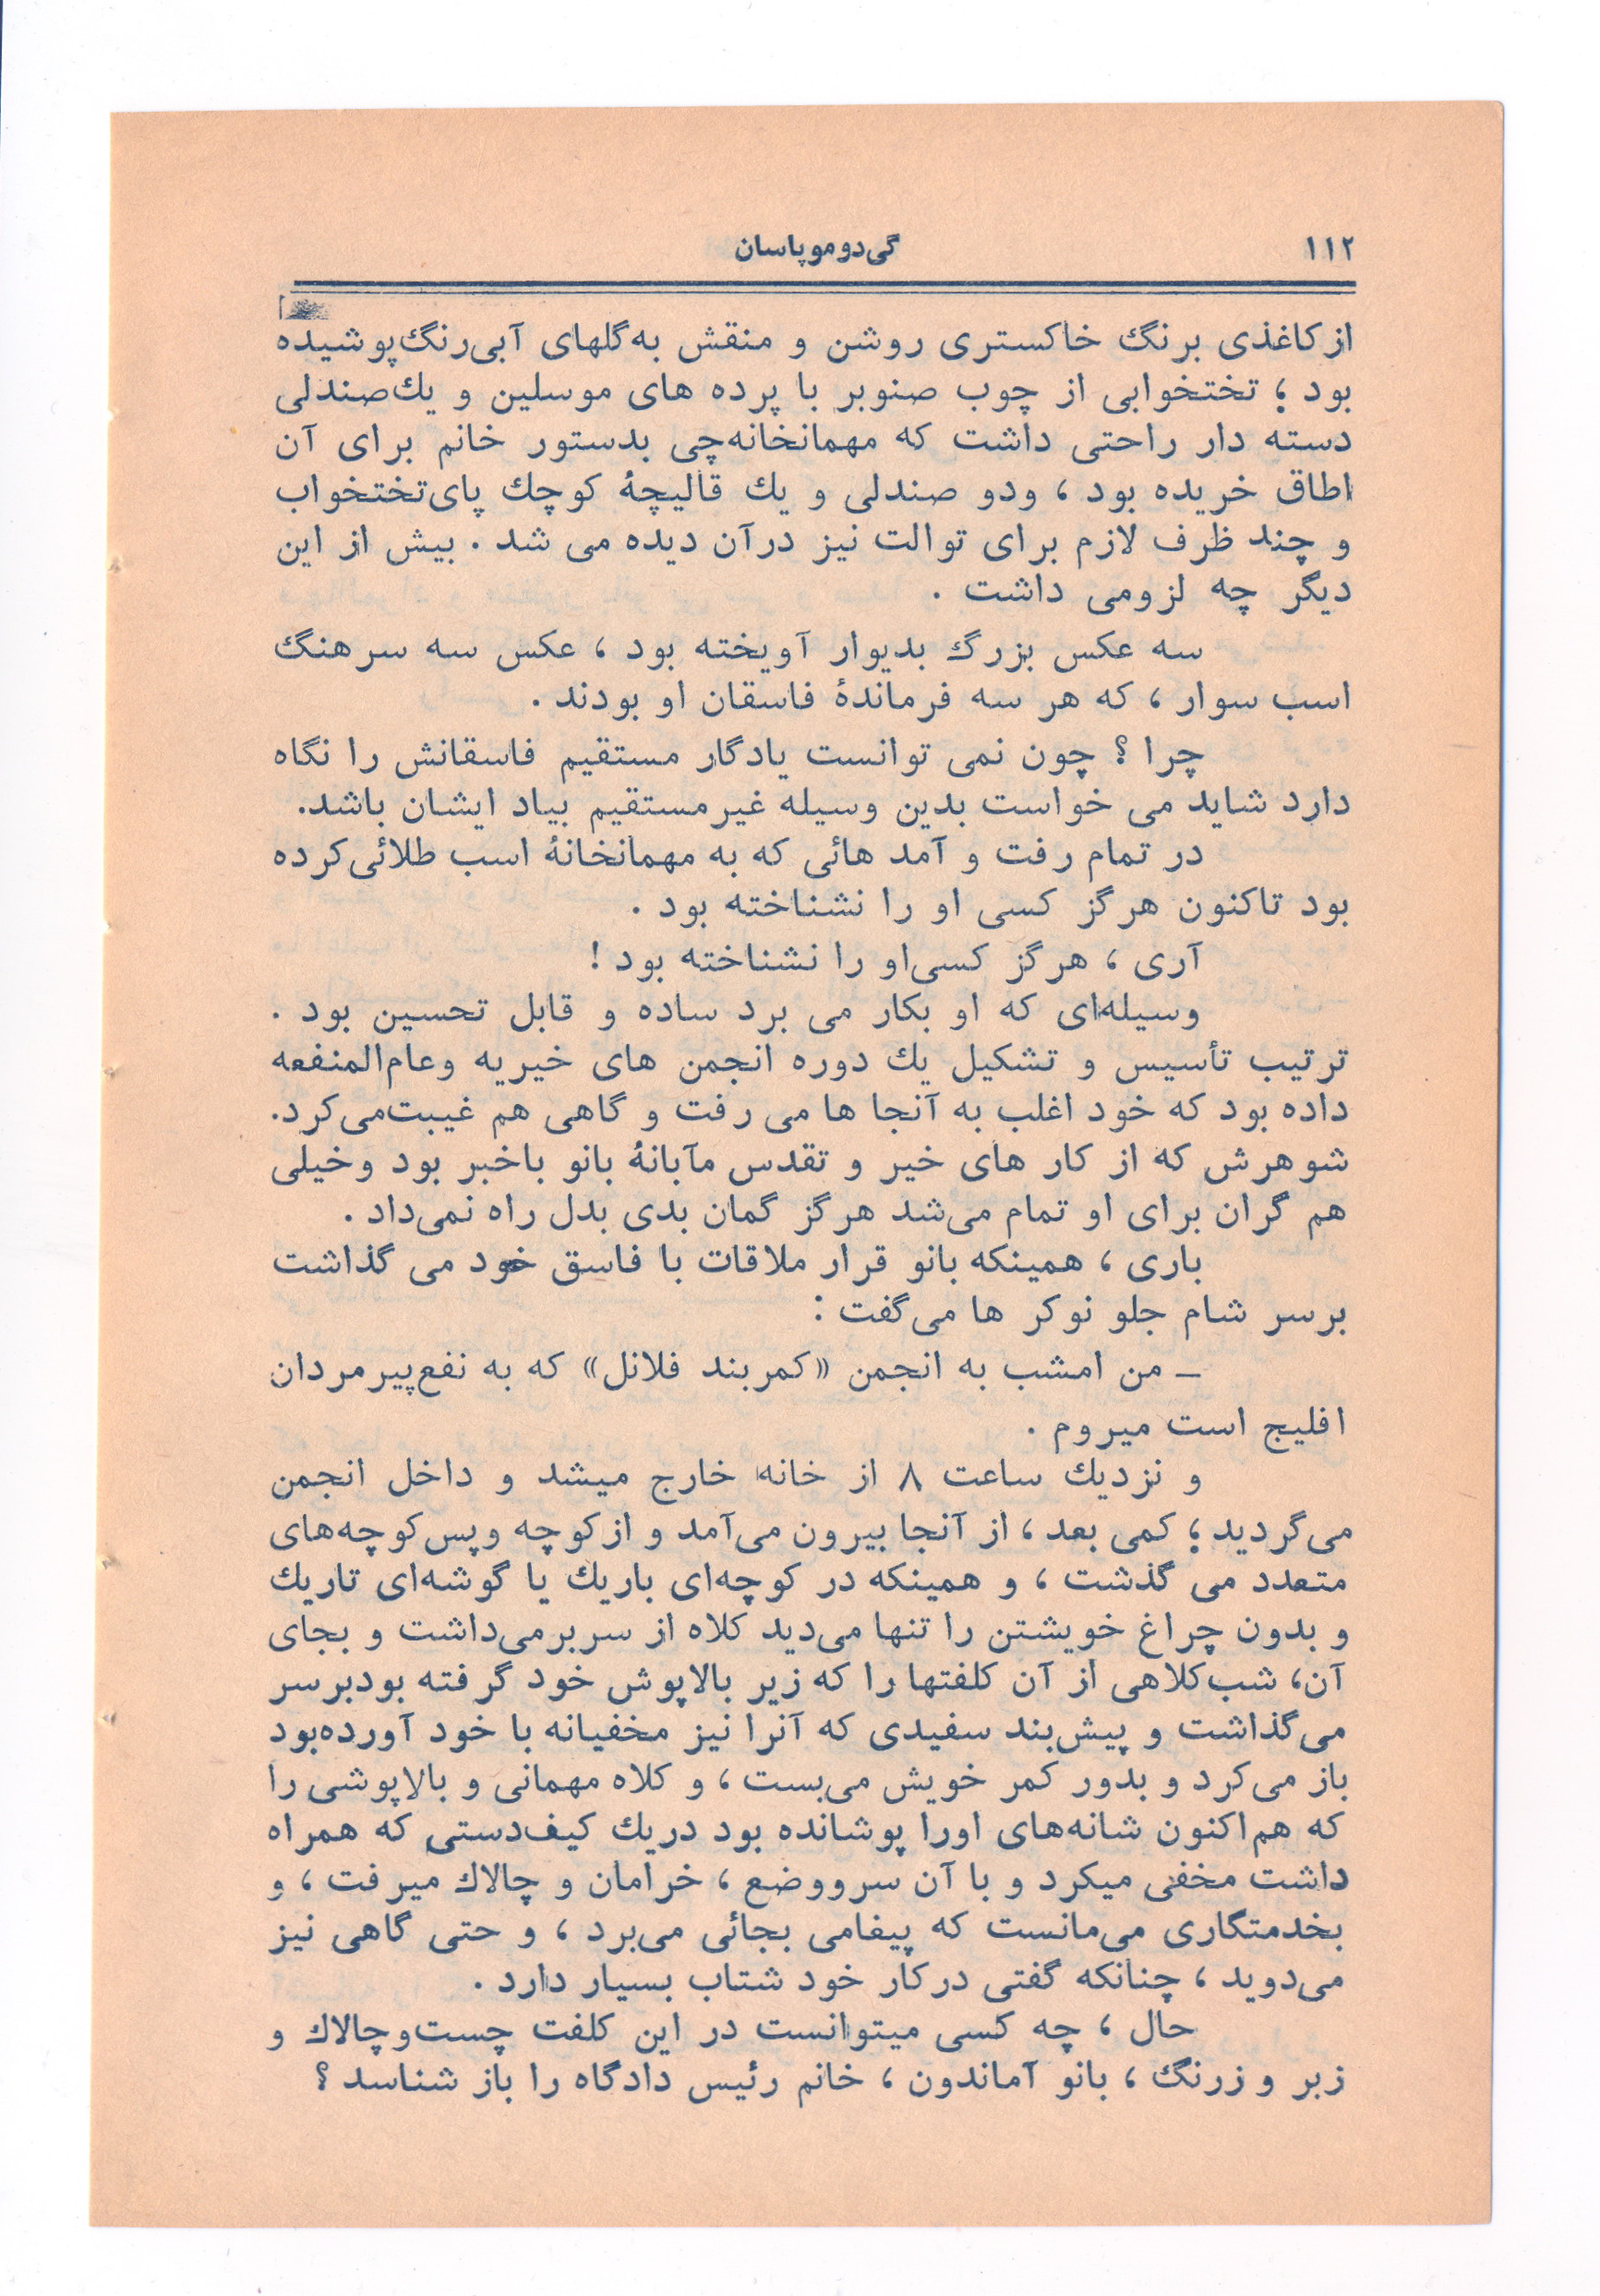 ۱۱۲
گی‌دوموپاسان
از کاغذی برنگ خاکستری روشن و منقش به گلهای آبی‌رنگ پوشیده
بود ؛ تختخوابی از چوب صنوبر با پرده های موسلین و یك صندلی
دسته دار راحتی داشت که مهمانخانه‌چی بدستور خانم برای آن
اطاق خریده بود ، ودو صندلی و یك قالیچهٔ کوچك پای تختخواب
و چند ظرف لازم برای توالت نیز درآن دیده می شد . بیش از این
دیگر چه لزومی داشت .
سه عکس بزرگ بدیوار آویخته بود ، عکس سه سرهنگ
اسب سوار ، که هر سه فرماندهٔ فاسقان او بودند .
چرا ؟ چون نمی توانست یادگار مستقیم فاسقانش را نگاه
دارد شاید می خواست بدین وسیله غیرمستقیم بیاد ایشان باشد.
در تمام رفت و آمد هائی که به مهمانخانهٔ اسب طلائی کرده
بود تاکنون هرگز کسی او را نشناخته بود .
آری ، هرگز کسی‌او را نشناخته بود !
وسیله‌ای که او بکار می برد ساده و قابل تحسین بود .
ترتیب تأسیس و تشکیل یك دوره انجمن های خیریه وعام‌المنفعه
داده بود که خود اغلب به آنجا ها می رفت و گاهی هم غیبت‌می‌کرد.
شوهرش که از کار های خیر و تقدس مآبانهٔ بانو باخبر بود وخیلی
هم گران برای او تمام می‌شد هرگز گمان بدی بدل راه نمی‌داد .
باری ، همینکه بانو قرار ملاقات با فاسق خود می گذاشت
برسر شام جلو نوکر ها می‌گفت :
ــ من امشب به انجمن «کمربند فلانل» که به نفع‌پیرمردان
افلیج است میروم .
و نزدیك ساعت ۸ از خانه خارج میشد و داخل انجمن
می‌گردید ؛ کمی بعد ، از آنجا بیرون می‌آمد و ازکوچه وپس‌کوچه‌های
متعدد می گذشت ، و همینکه در کوچه‌ای باریك یا گوشه‌ای تاریك
و بدون چراغ خویشتن را تنها می‌دید کلاه از سربرمی‌داشت و بجای
آن، شب‌کلاهی از آن کلفتها را که زیر بالاپوش خود گرفته بودبرسر
می‌گذاشت و پیش‌بند سفیدی که آنرا نیز مخفیانه با خود آورده‌بود
باز می‌کرد و بدور کمر خویش می‌بست ، و کلاه مهمانی و بالاپوشی را
که هم‌اکنون شانه‌های اورا پوشانده بود دریك کیف‌دستی که همراه
داشت مخفی میکرد و با آن سرووضع ، خرامان و چالاك میرفت ، و
بخدمتگاری می‌مانست که پیغامی بجائی می‌برد ، و حتی گاهی نیز
می‌دوید ، چنانکه گفتی درکار خود شتاب بسیار دارد .
حال ، چه کسی میتوانست در این کلفت چست‌وچالاك و
زبر و زرنگ ، بانو آماندون ، خانم رئیس دادگاه را باز شناسد ؟